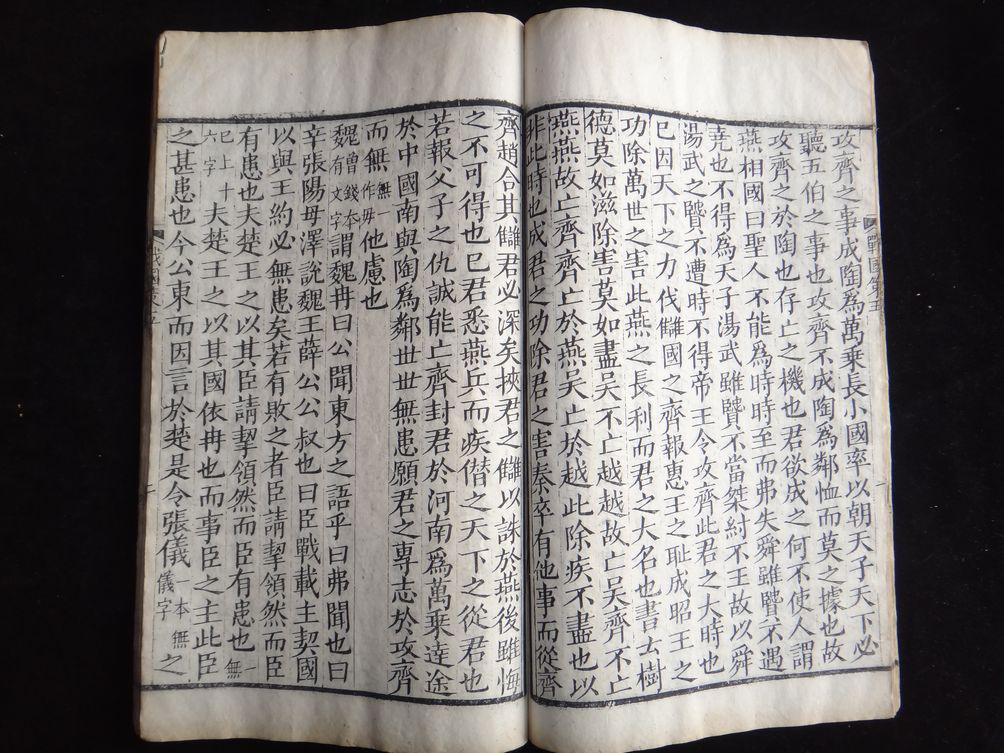 攻齊之事成陶為萬乗長小國率以朝天子天下必
聽五伯之事也攻齊不成陶為鄰恤而莫之據也故
攻齊之於陶也存亡之機也君欲成之何不使人謂
燕相國曰聖人不能為時時至而弗失舜雖賢不遇
堯也不得為天子湯武雖賢不當桀紂不王故以舜
湯武之賢不遭時不得帝王令攻齊此君之大時也
已因天下之力伐讎國之齊報惠王之恥成昭王之
功除萬世之害此燕之長利而君之大名也書云樹
德莫如滋除害莫如盡吳不亡越越故亡吳齊不亡
燕燕故亡齊齊亡於燕吳亡於越此除疾不盡也以
非此時也成君之功除君之害秦卒有他事而從齊
齊趙合其讎君必深矣挾君之讎以誅於燕後雖悔
之不可得也已君悉燕兵而疾僣之天下之從君也
若報父子之仇誠能亡齊封君於河南為萬乗達途
於中國南與陶為鄰世世無患願君之專志於攻齊
而無一無作毋他慮也
魏曾錢本有文字謂魏冉曰公聞東方之語乎曰弗聞也曰
辛張陽毋澤說魏王薛公公叔也曰臣戰載主契國
以與王約必無患矣若有敗之者臣請挈領然而臣
有患也夫楚王之以其臣請挈領然而臣有患也一無
已上十六字夫楚王之以其國依冉也而事臣之主此臣
之甚患也今公東而因言於楚是令張儀一本無儀字之
戰國策五